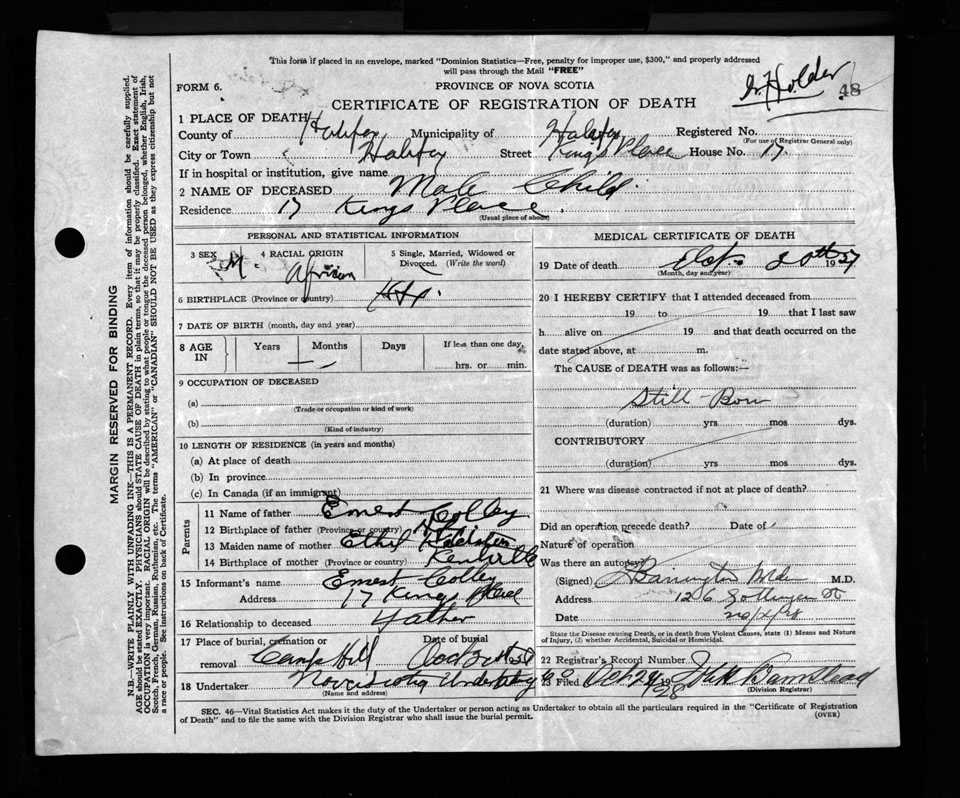 This form if placed in an envelope, marked "Dominion Statistics—Free, penalty for improper use, $300," and properly addressed
will pass through the Mail "FREE"
FORM 6.
PROVINCE OF NOVA SCOTIA
Holder
48
CERTIFICATE OF REGISTRATION OF DEATH
1 PLACE OF DEATH
County of Halifax, Municipality of Halifax Registered No.
(For use of Registrar General only)
City or Town Halifax Street Kings Place House No. 17.
If in hospital or institution, give name
2 NAME OF DECEASED Male Child.
Residence 17 Kings Place.
(Usual place of abode)
PERSONAL AND STATISTICAL INFORMATION
3 SEX M. 4 RACIAL ORIGIN African 5 Single, Married, Widowed or
Divorced. (Write the word)
6 BIRTHPLACE (Province or country) Hfx.
7 DATE OF BIRTH (month, day and year)
8 AGE IN Years Months Days If less than one day,
hrs. or min.
9 OCCUPATION OF DECEASED
(a)
(Trade or occupation or kind of work)
(b)
(Kind of industry)
10 LENGTH OF RESIDENCE (in years and months)
(a) At place of death
(b) In province
(c) In Canada (if an immigrant)
Parents
11 Name of father Ernest Colley
12 Birthplace of father (Province or country)
13 Maiden name of mother Ethel
14 Birthplace of mother (Province or country) Kentville
15 Informant's name Ernest Colley
Address 17 Kings Place
16 Relationship to deceased Father
17 Place of burial, cremation or Date of burial
removal Camp Hill Oct
18 Undertaker Nova Scotia Undertaking Co
(Name and address)
MEDICAL CERTIFICATE OF DEATH
19 Date of death 20th 19
(Month, day and year)
20 I HEREBY CERTIFY that I attended deceased from
19 to 19 that I last saw
h alive on 19 and that death occurred on the
date stated above, at m.
The CAUSE of DEATH was as follows:—
Still-Born
(duration) yrs mos dys.
CONTRIBUTORY
(duration) yrs mos dys.
21 Where was disease contracted if not at place of death?
Did an operation precede death? Date of
Nature of operation
Was there an autopsy?
(Signed) M.D.
Address 126 Gottingen St
Date
State the Disease causing Death, or in death from Violent Causes, state (1) Means and Nature
of Injury, (2) whether Accidental, Suicidal or Homicidal.
22 Registrar's Record Number
23 Filed Oct 24 1928
(Division Registrar)
SEC. 46—Vital Statistics Act makes it the duty of the Undertaker or person acting as Undertaker to obtain all the particulars required in the "Certificate of Registration
of Death" and to file the same with the Division Registrar who shall issue the burial permit.
(OVER)
MARGIN RESERVED FOR BINDING
N.B.—WRITE PLAINLY WITH UNFADING INK—THIS IS A PERMANENT RECORD. Every item of information should be carefully supplied.
AGE should be stated EXACTLY. PHYSICIANS should STATE CAUSE OF DEATH in plain terms, so that it may be properly classified. Exact statement of
OCCUPATION is very important. RACIAL ORIGIN will be described by stating to what people or tongue the deceased person belonged, whether English, Irish,
Scotch, French, German, Russian, Ruthenian, etc. The terms "AMERICAN" or "CANADIAN" SHOULD NOT BE USED as they express citizenship but not
a race or people. See instructions on back of Certificate.